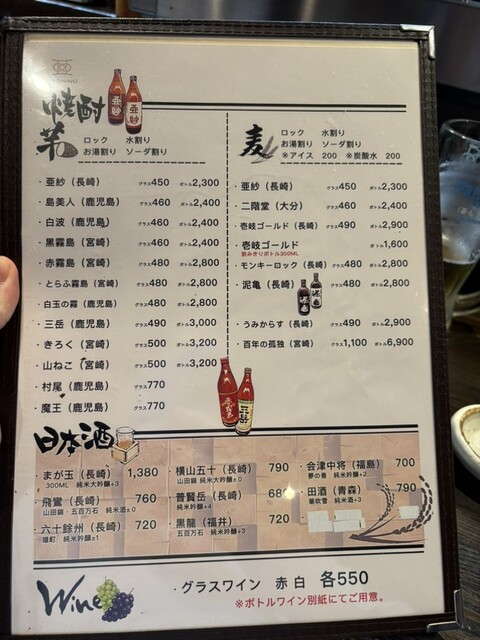 焼酎
亜紗
亜紗
芋
ロック 水割り
お湯割り ソーダ割り
・亜紗（長崎） グラス450 ボトル2,300
・島美人（鹿児島） グラス460 ボトル2,400
・白波（鹿児島） グラス460 ボトル2,400
・黒霧島（宮崎） グラス460 ボトル2,400
・赤霧島（宮崎） グラス480 ボトル2,800
・とらふ霧島（宮崎） グラス480 ボトル2,800
・白玉の霧（鹿児島） グラス480 ボトル2,800
・三岳（鹿児島） グラス490 ボトル3,000
・きろく（宮崎） グラス500 ボトル3,200
・山ねこ（宮崎） グラス500 ボトル3,200
・村尾（鹿児島） グラス770
・魔王（鹿児島） グラス770
麦
ロック 水割り
お湯割り ソーダ割り
※アイス 200 ※炭酸水 200
・亜紗（長崎） グラス450 ボトル2,300
・二階堂（大分） グラス460 ボトル2,400
・壱岐ゴールド（長崎） グラス490 ボトル2,900
・壱岐ゴールド ボトル1,600
飲みきりボトル300ML
・モンキーロック（長崎） グラス480 ボトル2,800
・泥亀（長崎） グラス480 ボトル2,800
・うみからす（長崎） グラス490 ボトル2,900
・百年の孤独（宮崎） グラス1,100 ボトル6,900
三岳
日本酒
・まが玉（長崎） 1,380
300ML 純米大吟醸+3
・飛鸞（長崎） 760
山田錦 五百万石 純米酒±0
・六十餘州（長崎） 720
雄町 純米吟醸±1
・横山五十（長崎） 790
山田錦 純米大吟醸±0
・普賢岳（長崎） 680
純米吟醸+4
・黒龍（福井） 720
五百万石 純米吟醸+3
・会津中将（福島） 700
夢の香 純米吟醸+2
・田酒（青森） 790
華吹雪 純米酒+3
Wine
・グラスワイン 赤 白 各550
※ボトルワイン別紙にてご用意。